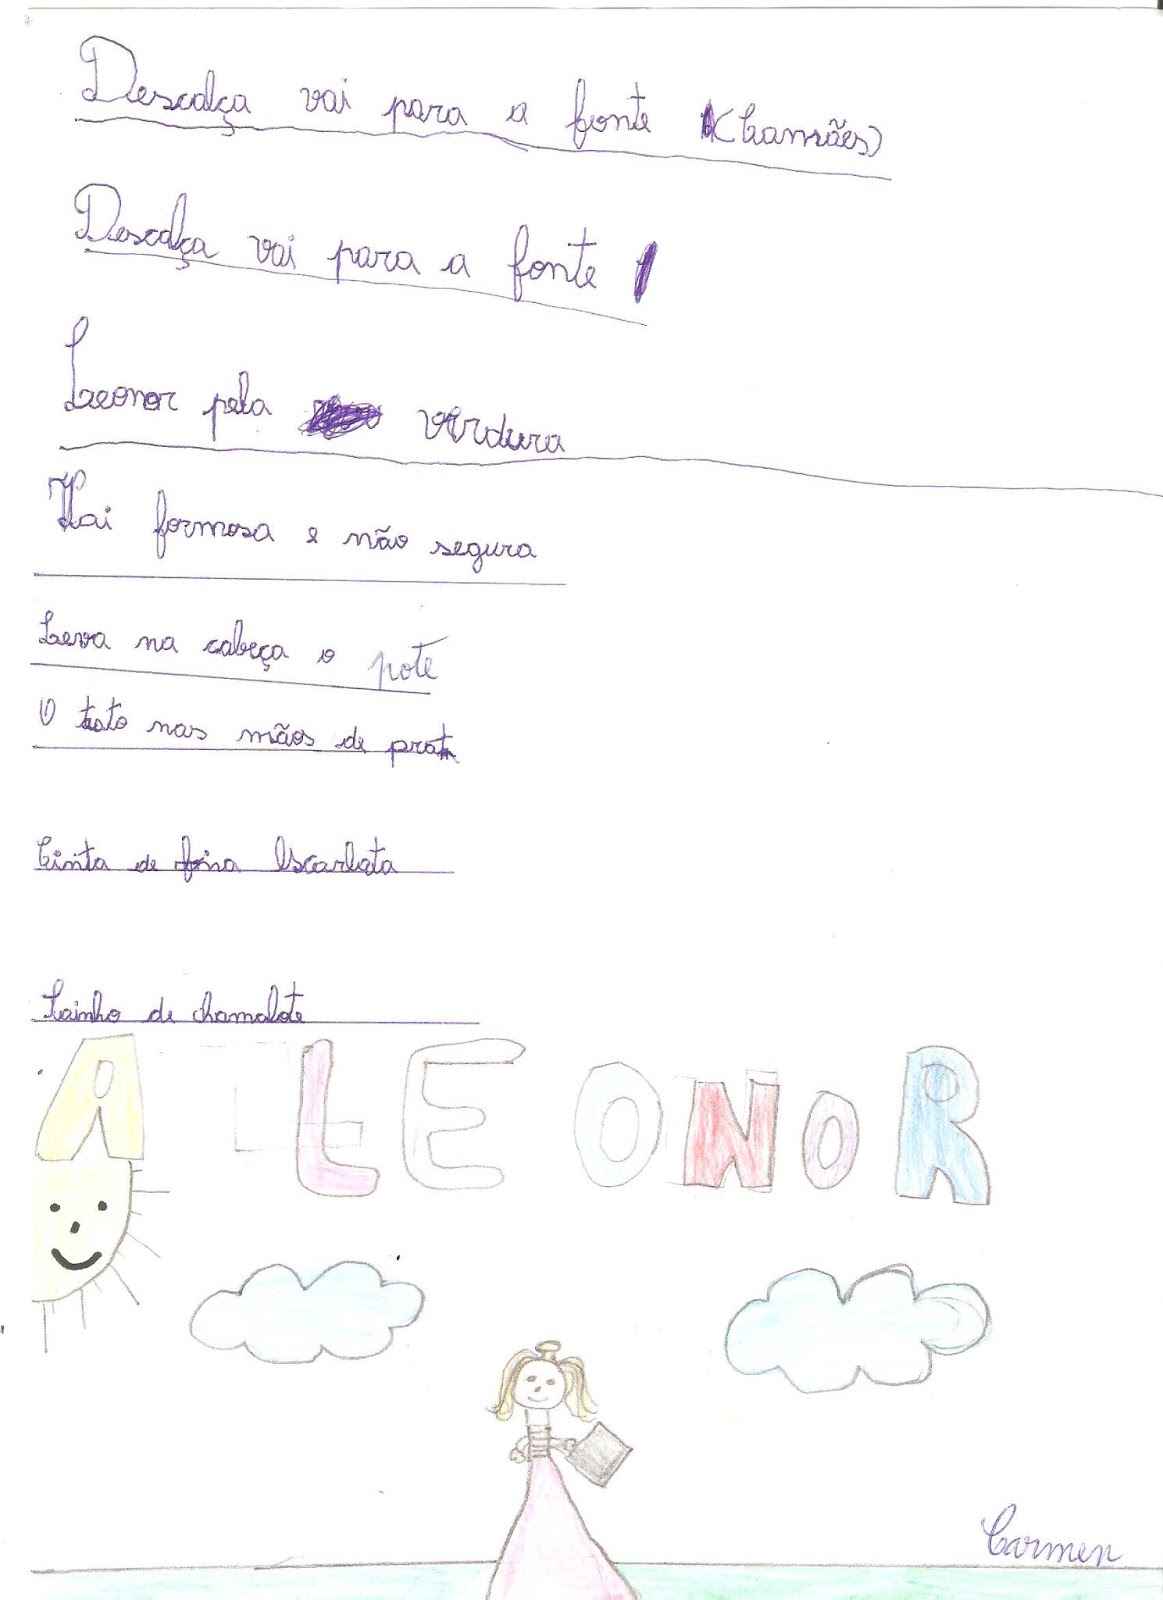 Descalça vai para a fonte (Camões)
Descalça vai para a fonte
Leonor pela verdura
Vai formosa e não segura
Leva na cabeça o pote
O testo nas mãos de prata
Cinta de fina Escarlata
Sainho de chamalote
A LEONOR
Carmen